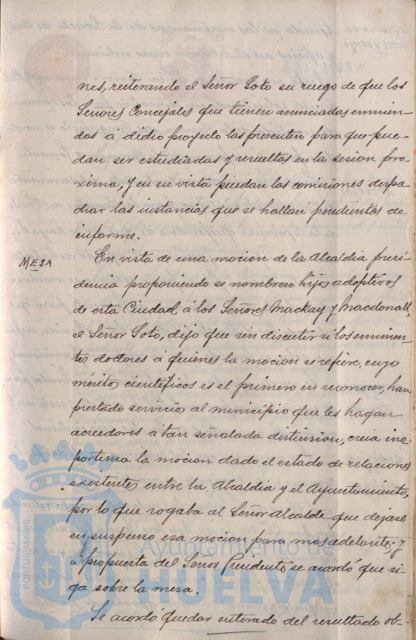 nes, reiterando el Señor Soto su ruego de que los
Señores Concejales que tienen anunciadas enmien-
das á dicho proyecto las presenten para que pue-
dan ser estudiadas y resueltas en la sesion pro-
xima, y en su vista puedan las comisiones despa-
char las instancias que se hallan pendientes de
informe.
MESA
En vista de una mocion de la Alcaldia presi-
dencia proponiendo se nombren hijos adoptivos
de esta Ciudad, á los Señores Mackay y Macdonall,
el Señor Soto, dijo que sin discutir si los eminen-
tes doctores á quienes la mocion se refiere, cuyos
méritos cientificos es el primero en reconocer, han
prestado servicio al municipio que les hagan
acreedores á tan señalada distension, creia ino-
portuna la mocion dado el estado de relaciones
existentes entre la Alcaldia y el Ayuntamiento,
por lo que rogaba al Señor Alcalde que dejase
en suspenso esa mocion para mas adelante; y
á propuesta del Señor Prudente se acordó que si-
ga sobre la mesa.
Se acordó quedar enterado del resultado ob-
PORTUS MARIS
Ayuntamiento de
HUELVA